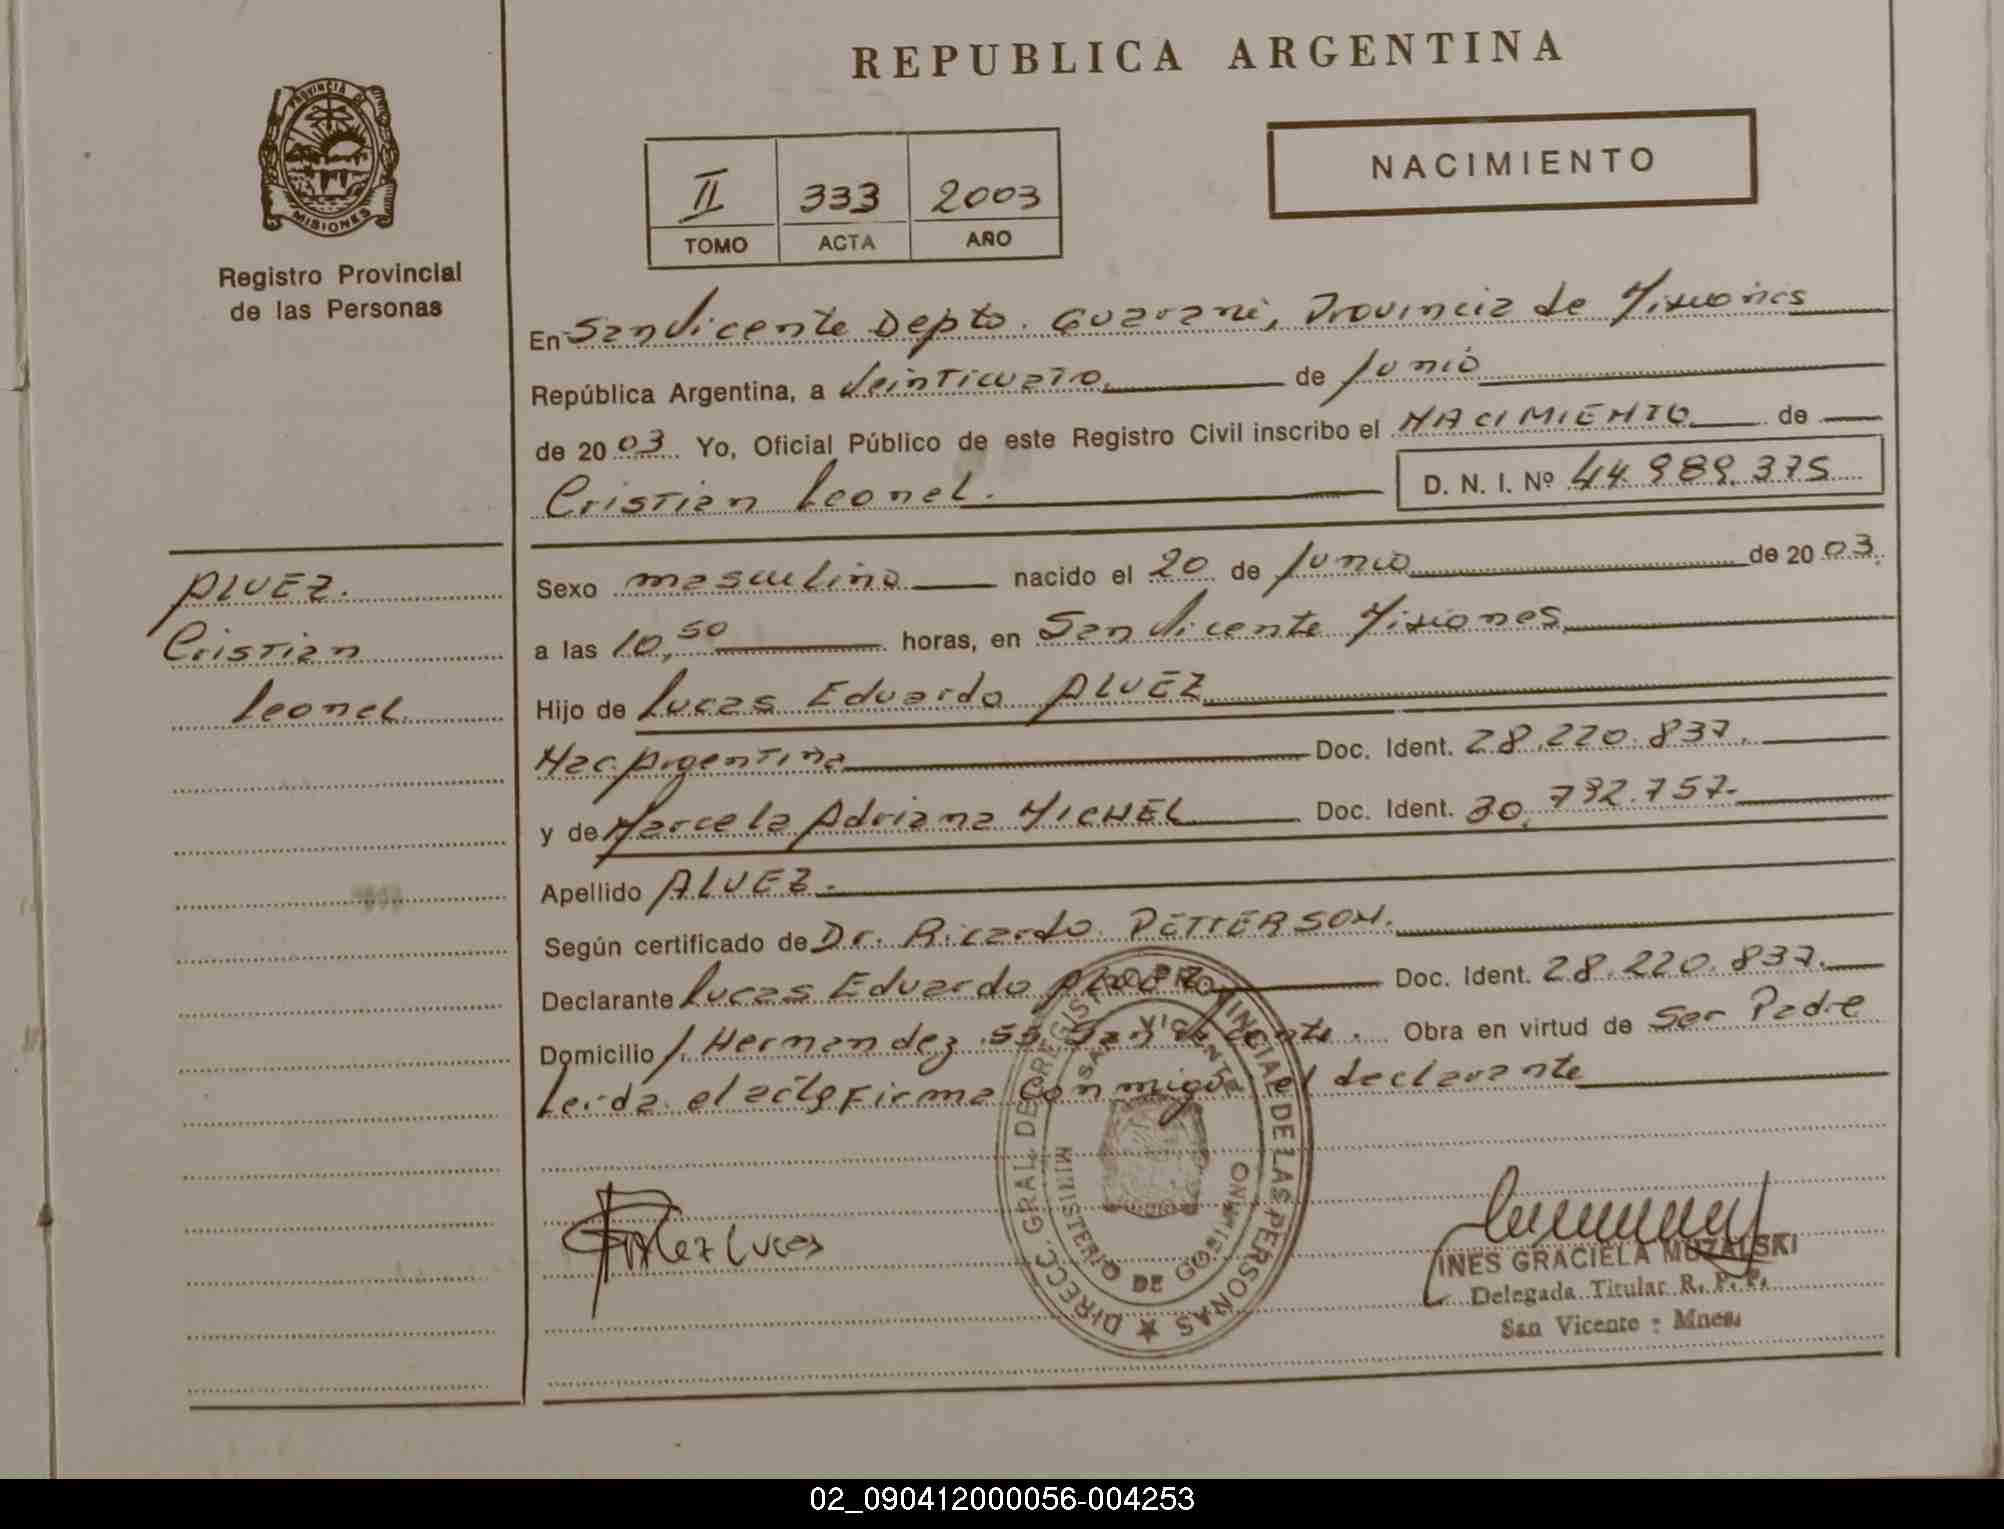 REPUBLICA ARGENTINA
PROVINCIA DE
MISIONES
Registro Provincial
de las Personas
NACIMIENTO
II 333 2003
TOMO ACTA AÑO
En San Vicente Depto. Guarani, Provincia de Misiones
República Argentina, a Veinticuatro de Junio
de 2003 Yo, Oficial Público de este Registro Civil inscribo el NACIMIENTO de
Cristian Leonel. D. N. I. Nº 44.989.375
ALVEZ.
Cristian
Leonel
Sexo masculino nacido el 20 de Junio de 2003.
a las 10,50 horas, en San Vicente Misiones
Hijo de Lucas Eduardo ALVEZ
Nac. Argentina Doc. Ident. 28.220.837.
y de Marcela Adriana MICHEL Doc. Ident. 30.792.757.
Apellido ALVEZ.
Según certificado de Dr. Ricardo PETTERSON.
Declarante Lucas Eduardo ALVEZ Doc. Ident. 28.220.837.
Domicilio J. Hernandez 55 San Vicente. Obra en virtud de Ser Padre
Leida el acta Firma Conmigo el declarante
DIRECC. GRAL. DE REGISTRO PROVINCIAL DE LAS PERSONAS
SAN VICENTE
MINISTERIO DE GOBIERNO
Alvez Lucas
INES GRACIELA MUZALSKI
Delegada Titular R. P. P.
San Vicente - Mnes.
02_090412000056-004253